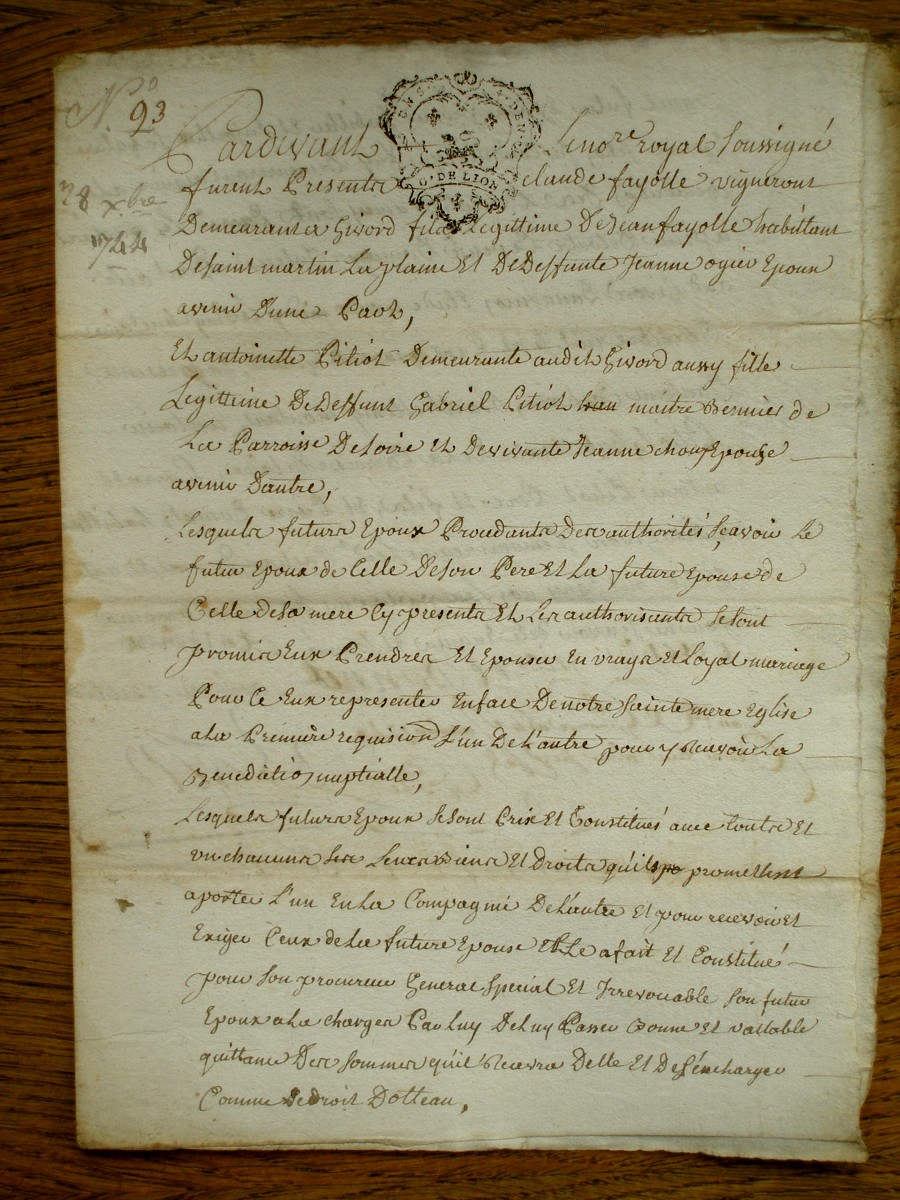 No 93
28 xbre
1744
GEN
G. DE LION
Pardevant Le nore royal soussigné
furent Presents claude fayolle vigneront
Demeurant a Givord fils Legittime De Jean fayolle habittant
De saint martin La plaine Et De Deffunte Jeanne ogier Epoux
avenir D'une Part,
Et antoinette Pitiot Demeurante audit Givord aussy fille
Legittime De Deffunt Gabriel Pitiot maitre
La Parroisse De loire Et De vivante Jeanne choux Epouze
avenir D'autre,
Lesquels futurs Epoux Procedants Des authorités sçavoir Le
futur Epoux de Celle De son Pere Et La future Epouse de
Celle de sa mere Cy presents Et Les authorisants se sont
promis Eux Prendres Et Epouser En vrays Et Loyal mariage
Pour Ce Eux representer En face De notre sainte mere Eglise
a La Première requision L'un De L'autre pour y Recevoir La
Benediction nuptialle,
Lesquels futurs Epoux se sont Pris Et Constitués avec Touts Et
un chacuns ses Leurs Biens Et Droits qu'ils promettent
aporter L'un En La Compagnie De L'autre Et pour recevoir Et
Exiger Ceux de La future Epouse Elle a fait Et Constitué
pour son procureur General special Et Irrevocable son futur
Epoux a La charges Par Luy De Luy Passer Bonne Et vallable
quittance Des sommes qu'il Recevra Delle Et De L'en charger
Comme De droit Dotteau,